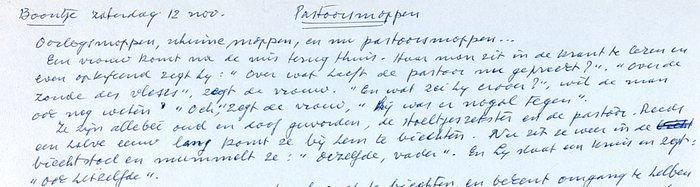 Boontje zaterdag 12 nov. Pastoorsmoppen
Oorlogsmoppen, schuine moppen, en nu pastoorsmoppen...
Een vrouw komt na de mis terug thuis. Haar man zit in de krant te lezen en
even opkijkend zegt hij: "Over wat heeft de pastoor nu gepreekt?". "Over de
zonde des vlees", zegt de vrouw. "En wat zei hij ervan?", wil de man
ook nog weten. "Och", zegt de vrouw, "hij was er nogal tegen".
Ze zijn allebei oud en doof geworden, de stoeltjeszetster en de pastoor. Reeds
een halve eeuw lang komt ze bij hem te biechten. Nu zit ze weer in de
biechtstoel en mummelt ze: "Dezelfde, vader". En hij slaat een kruis en zegt:
"Ook hetzelfde".
biechten en bekent omgang te hebben